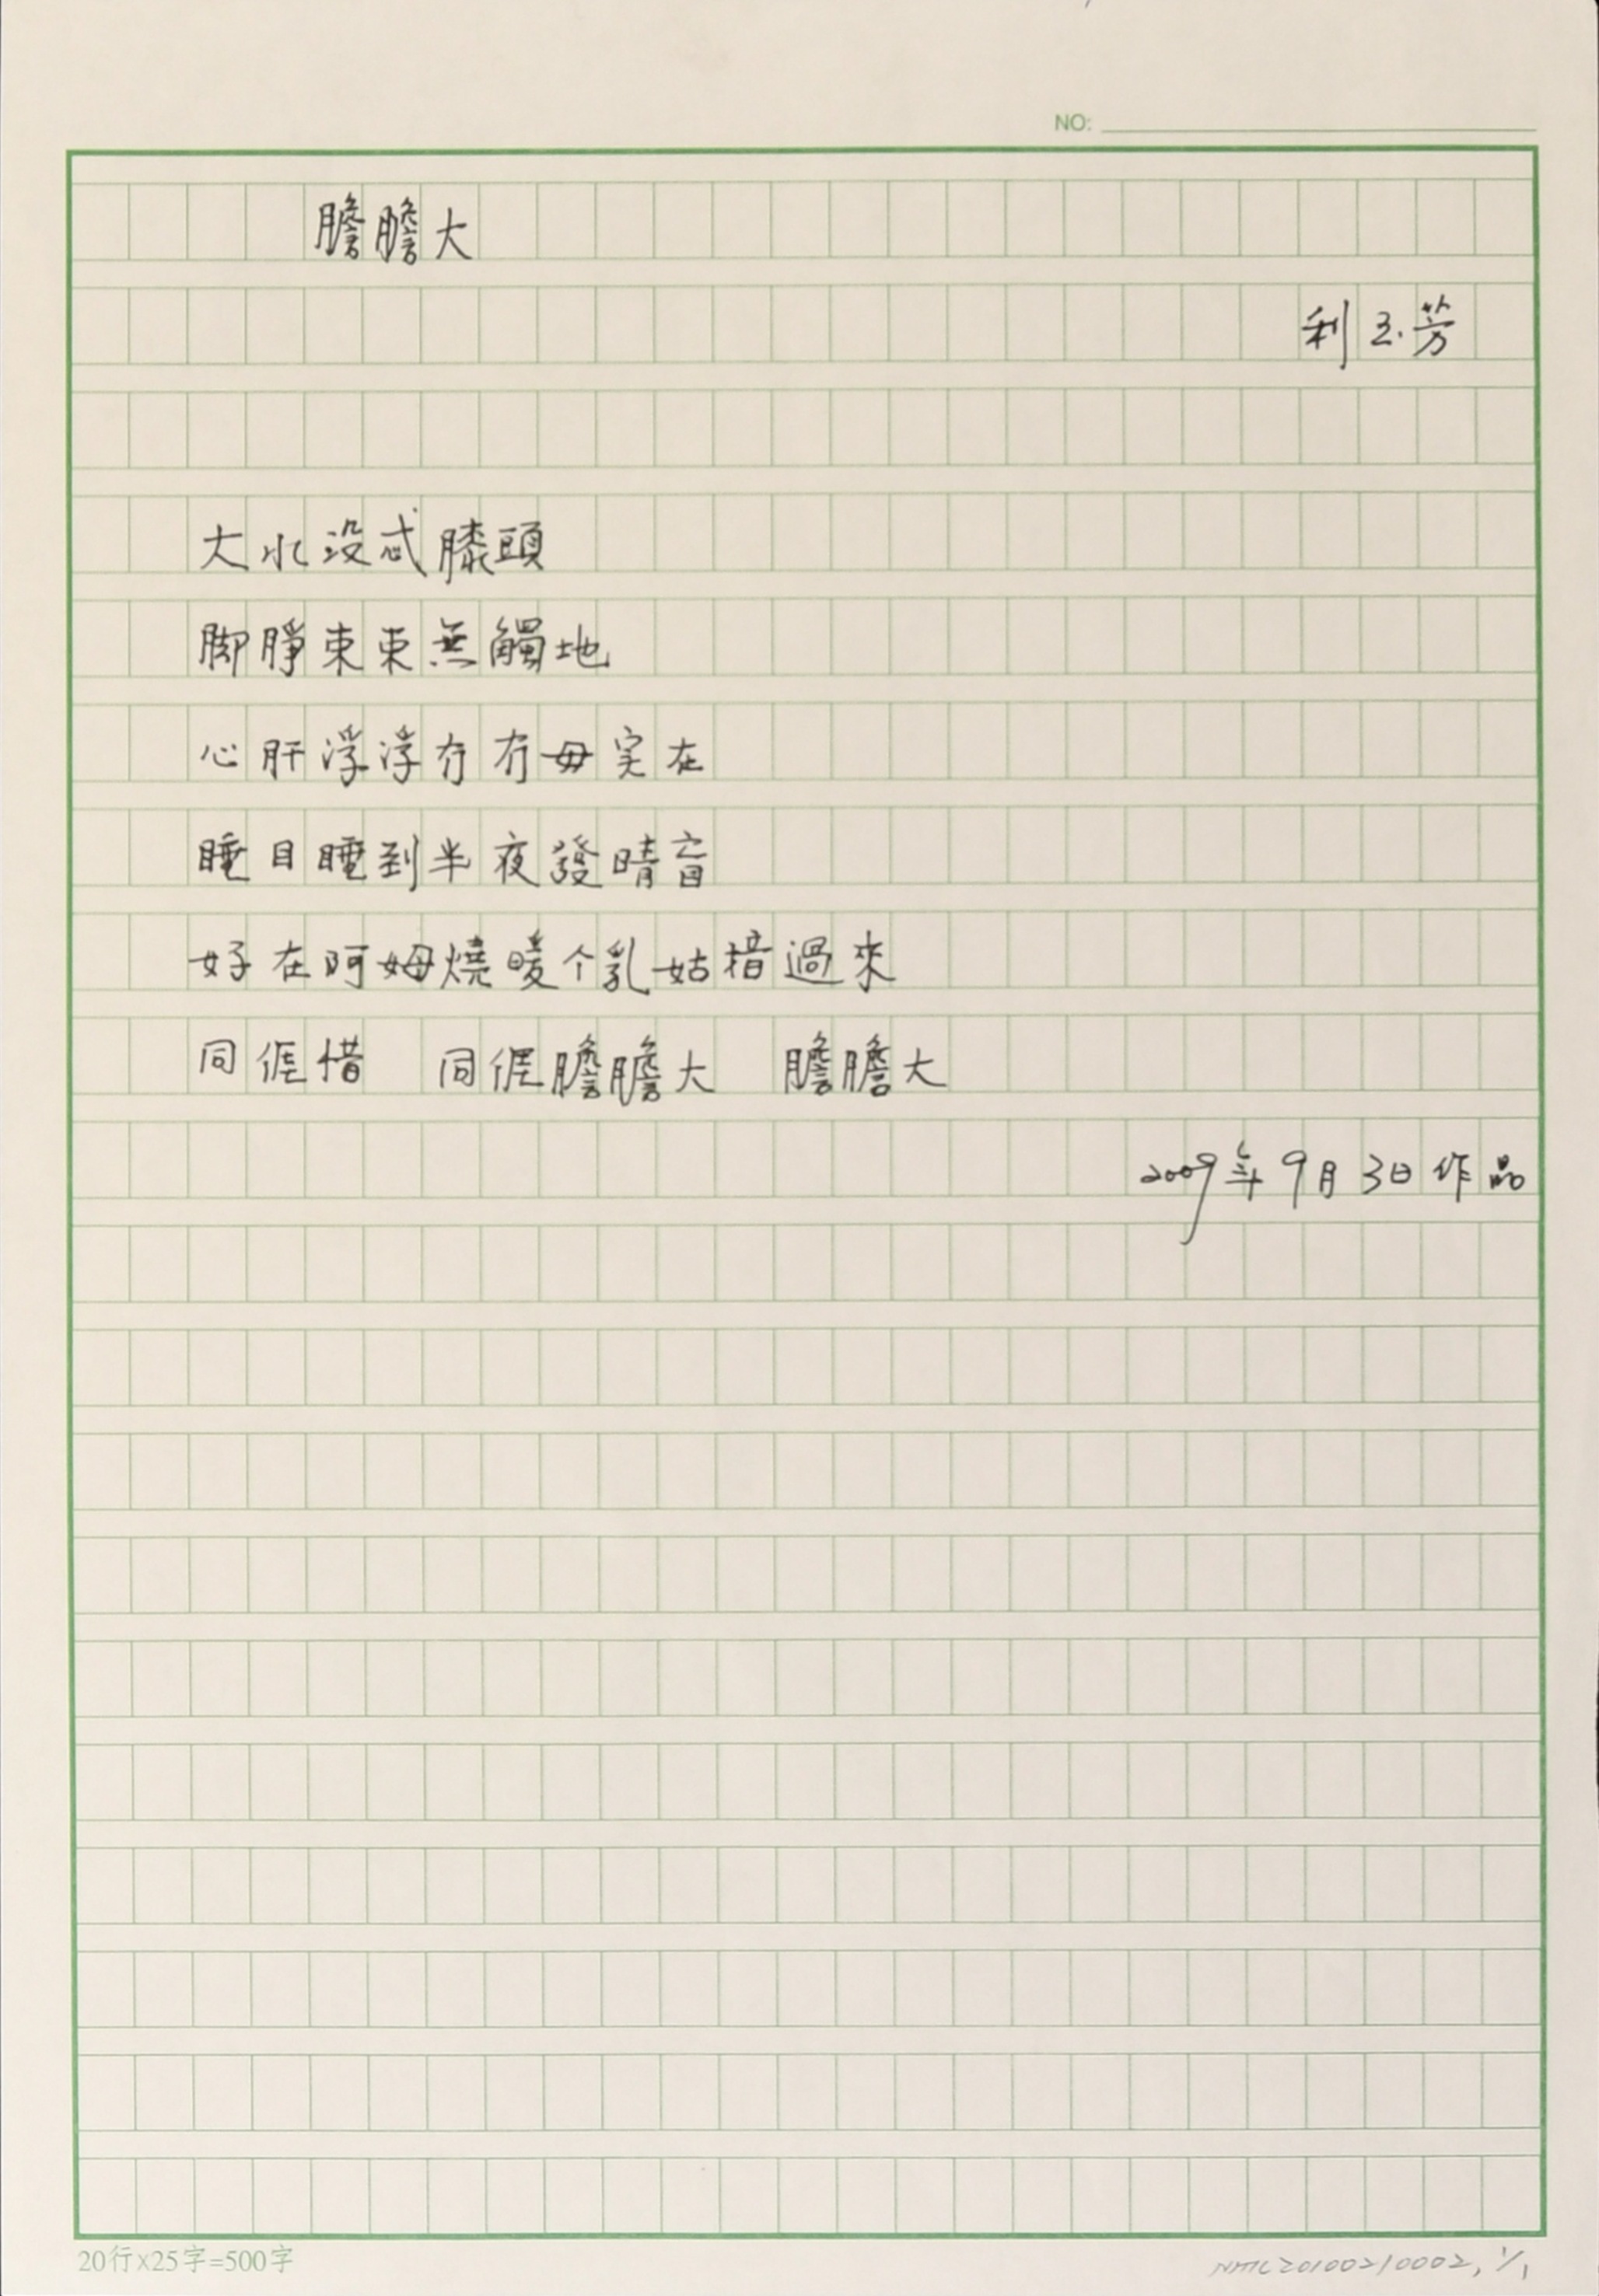 NO:
膽膽大
利玉芳
大水没忒膝頭
脚睜束束無觸地
心肝浮浮冇冇毋実在
睡目睡到半夜發晴盲
好在阿姆燒暖个乳姑揞過來
同𠊎惜　同𠊎膽膽大　膽膽大
2009年9月3日作品
20行×25字=500字
NMTL20100210002, 1/1